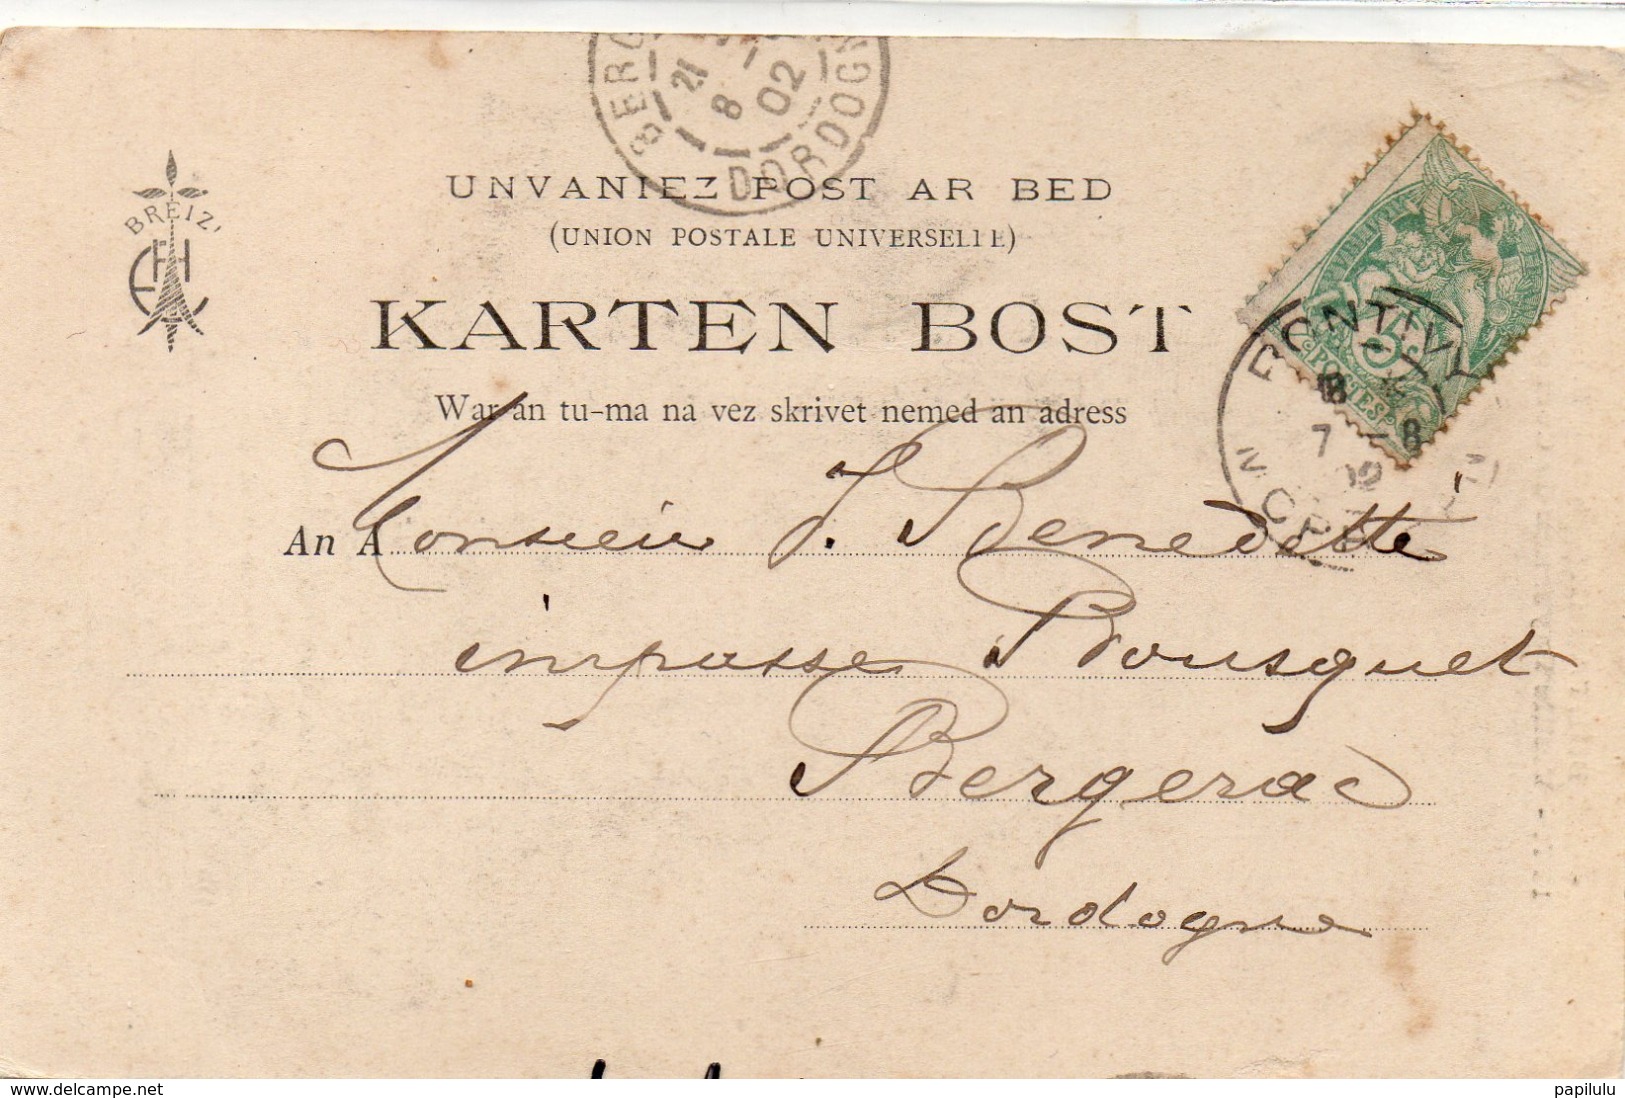 BERG
21 8 02
DORDOGN
UNVANIEZ POST AR BED
(UNION POSTALE UNIVERSELLE)
BREIZ
KARTEN BOST
War an tu-ma na vez skrivet nemed an adress
PONTIVY
7 - 8
02
MORB
5c
POSTES
An A Monsieur J. Benedette
impasse Bousquet
Bergerac
Dordogne
www.delcampe.net
papilulu